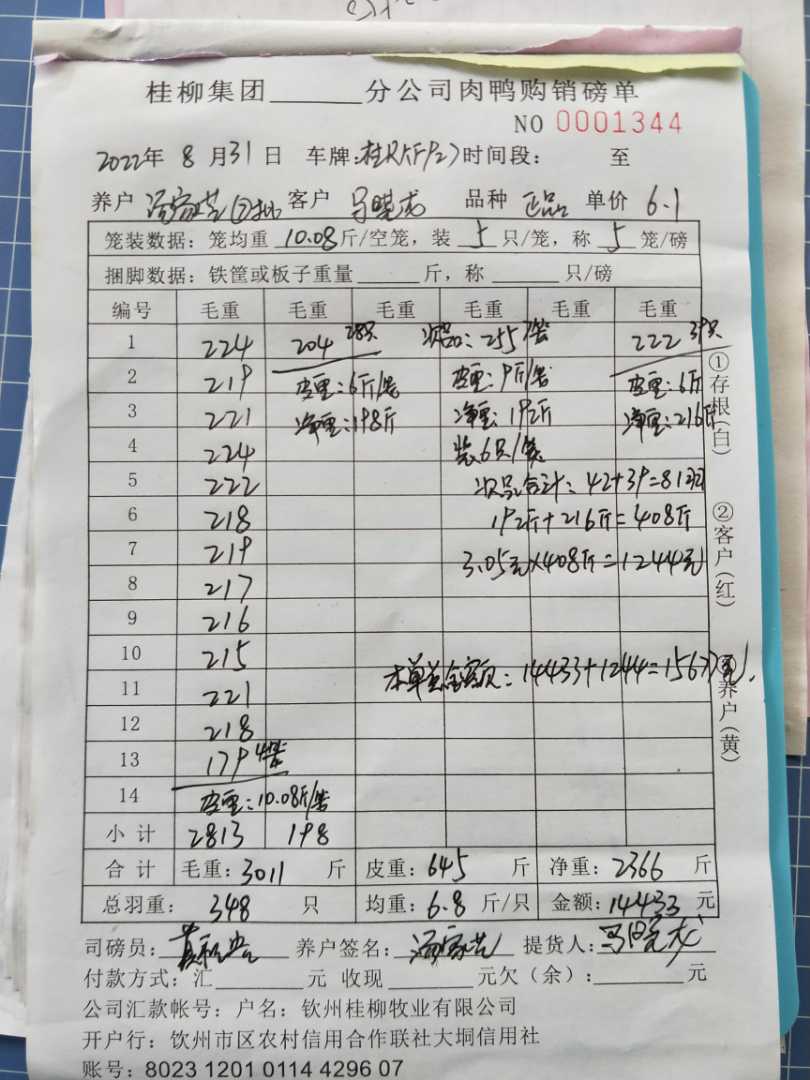 桂柳集团______分公司肉鸭购销磅单
NO 0001344
2022年 8月31日 车牌: 时间段: 至
养户 客户 马晓龙 品种 正品 单价 6.1
笼装数据:笼均重 10.08斤/空笼,装 5 只/笼,称 5 笼/磅
捆脚数据:铁筐或板子重量______斤,称______只/磅
编号 毛重 毛重 毛重 毛重 毛重 毛重
1 224 204 28只 次品:255 7笼 222 39只
2 219 皮重:6斤/笼 皮重:9斤/笼 皮重:6斤
3 221 净重:198斤 净重:192斤 净重:216斤
4 224 装6只/笼
5 222 次品合计:42+39=81羽
6 218 192斤+216斤=408斤
7 219 3.05元×408斤=1244元
8 217
9 216
10 215
11 221 本单总金额:14433+1244=15677元.
12 218
13 179 4笼
14 皮重:10.08斤/笼
小计 2813 198
合计 毛重:3011 斤 皮重:645 斤 净重:2366 斤
总羽重: 348 只 均重:6.8 斤/只 金额:14433 元
司磅员: 养户签名: 提货人:马晓龙
付款方式:汇______元 收现______元欠(余):______元
公司汇款帐号:户名:钦州桂柳牧业有限公司
开户行:钦州市区农村信用合作联社大垌信用社
账号:8023 1201 0114 4296 07
①存根(白)
②客户(红)
③养户(黄)